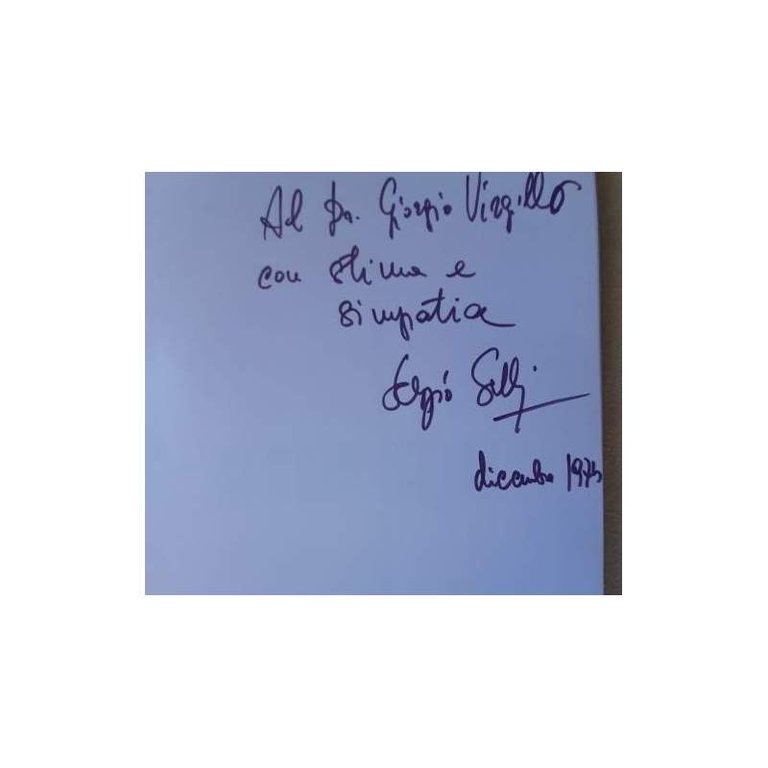 Al Dr. Giorgio Virgillo
con stima e
simpatia
Sergio
dicembre